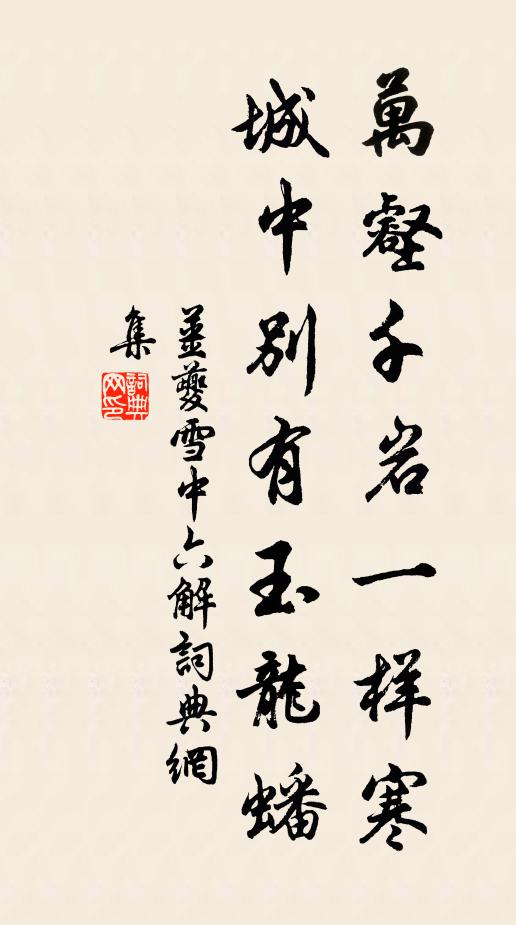 萬壑千岩一样寒
城中別有玉龍蟠
姜夔雪中六解詞典網
集
詞典
网印